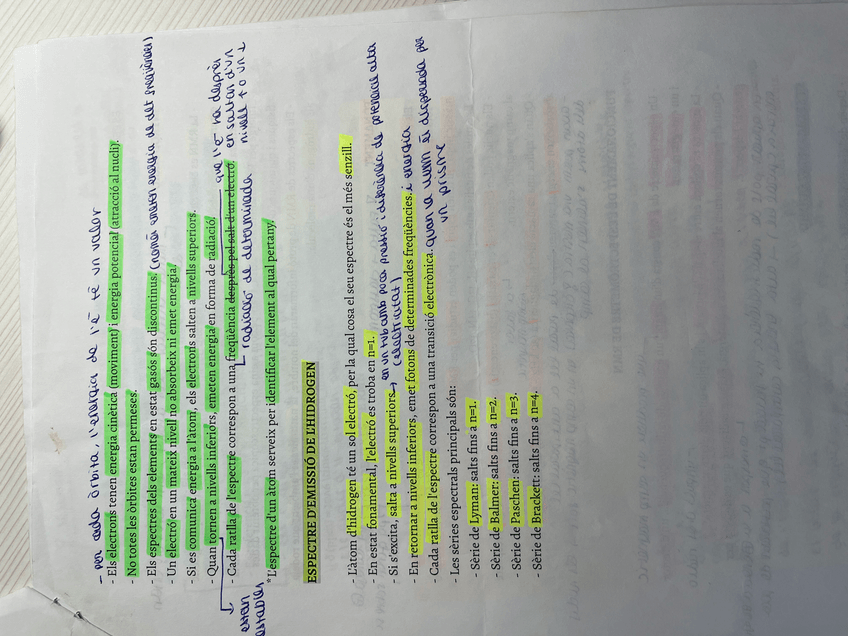 - per cada òrbita, l'energia de l'e⁻ té un valor
- Els electrons tenen energia cinètica (moviment) i energia potencial (atracció al nucli).
- No totes les òrbites estan permeses.
- Els espectres dels elements en estat gasós són discontinus. (només emeten energia de det freqüències)
- Un electró en un mateix nivell no absorbeix ni emet energia.
- Si es comunica energia a l'àtom, els electrons salten a nivells superiors.
- Quan tornen a nivells inferiors, emeten energia en forma de radiació.
estan
estables
- Cada ratlla de l'espectre correspon a una freqüència després pel salt d'un electró.
que l'e⁻ ha després
en saltar d'un
nivell ↑ o un ↓
radiació de determinada
*L'espectre d'un àtom serveix per identificar l'element al qual pertany.
ESPECTRE D'EMISSIÓ DE L'HIDROGEN
- L'àtom d'hidrogen té un sol electró, per la qual cosa el seu espectre és el més senzill.
- En estat fonamental, l'electró es troba en n=1.
- Si s'excita, salta a nivells superiors → en un tub amb poca pressió i diferència de potencial alta
(electricitat)
- En retornar a nivells inferiors, emet fotons de determinades freqüències. i energia
- Cada ratlla de l'espectre correspon a una transició electrònica. quan a llum és dispersada per
un prisme
- Les sèries espectrals principals són:
- Sèrie de Lyman: salts fins a n=1.
- Sèrie de Balmer: salts fins a n=2.
- Sèrie de Paschen: salts fins a n=3.
- Sèrie de Brackett: salts fins a n=4.